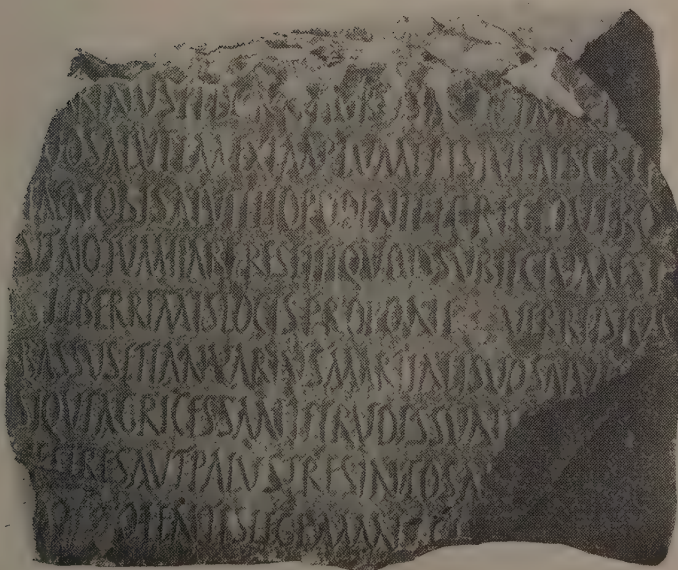 SVO SALVTEM EXEMPLVM EPISTVLAE SCRI
TAE NOBIS A TVTILIO PVDENTE EGREG O VIRO
VT NOTVM HABERES ET IT QVOD SVBIECTVM EST
LEBERRIMIS LOCIS PROPONE VERRIDIVS
BASSVS ET IANVARIVS MARTIALI SVO SALV
SI QVI AGRI CESSANT ET RVDES SVNT
ESTRES AVT PALVSTRES IN EO SA
LENTES LEGE MANC